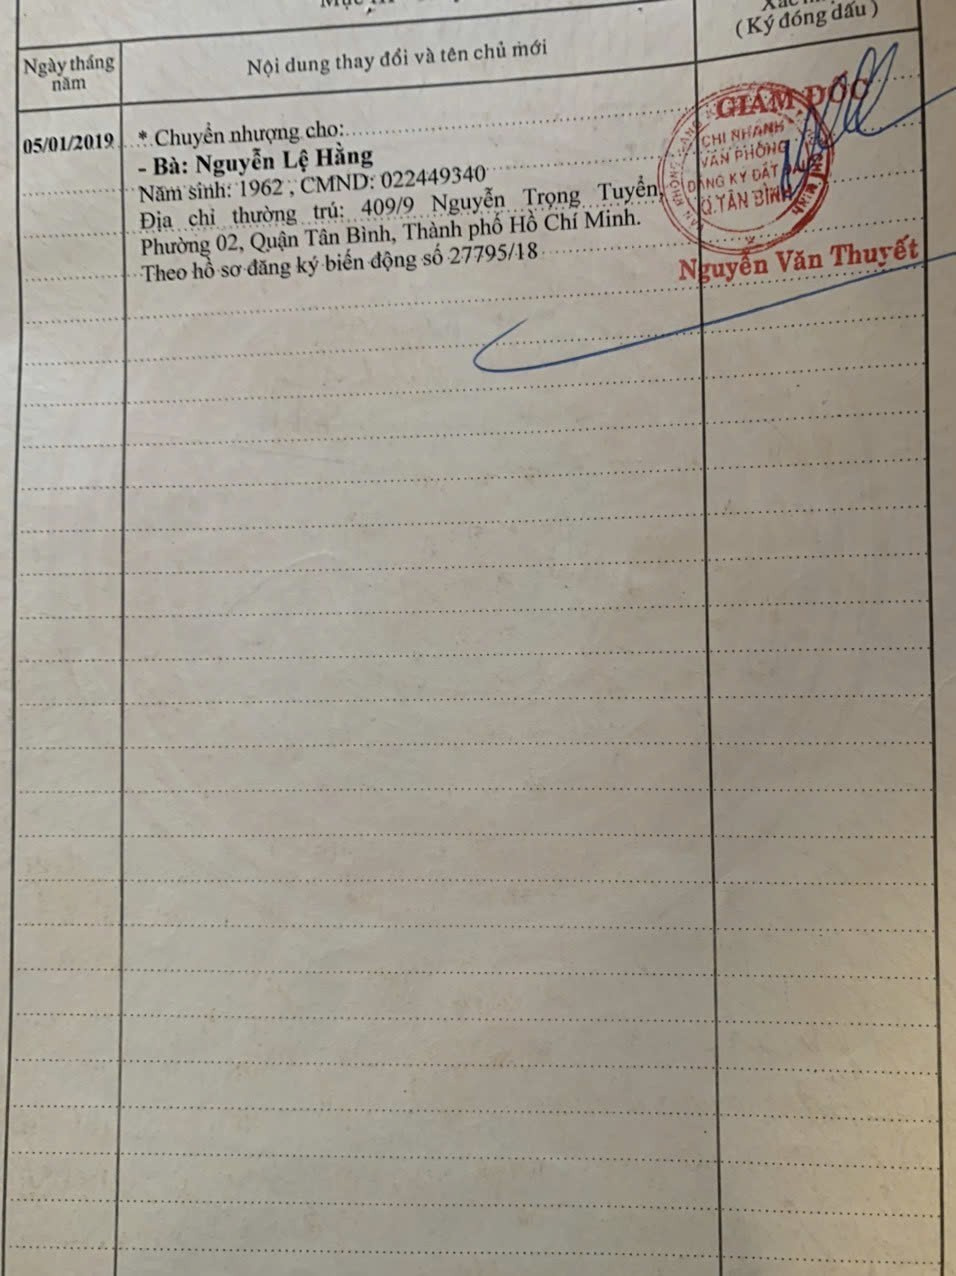 Ngày tháng
năm
Nội dung thay đổi và tên chủ mới
(Ký đóng dấu)
05/01/2019
* Chuyển nhượng cho:
- Bà: Nguyễn Lệ Hằng
Năm sinh: 1962 , CMND: 022449340
Địa chỉ thường trú: 409/9 Nguyễn Trọng Tuyển,
Phường 02, Quận Tân Bình, Thành phố Hồ Chí Minh.
Theo hồ sơ đăng ký biến động số 27795/18
GIÁM ĐỐC
CHI NHÁNH
VĂN PHÒNG
ĐĂNG KÝ ĐẤT ĐAI
Q.TÂN BÌNH
Nguyễn Văn Thuyết